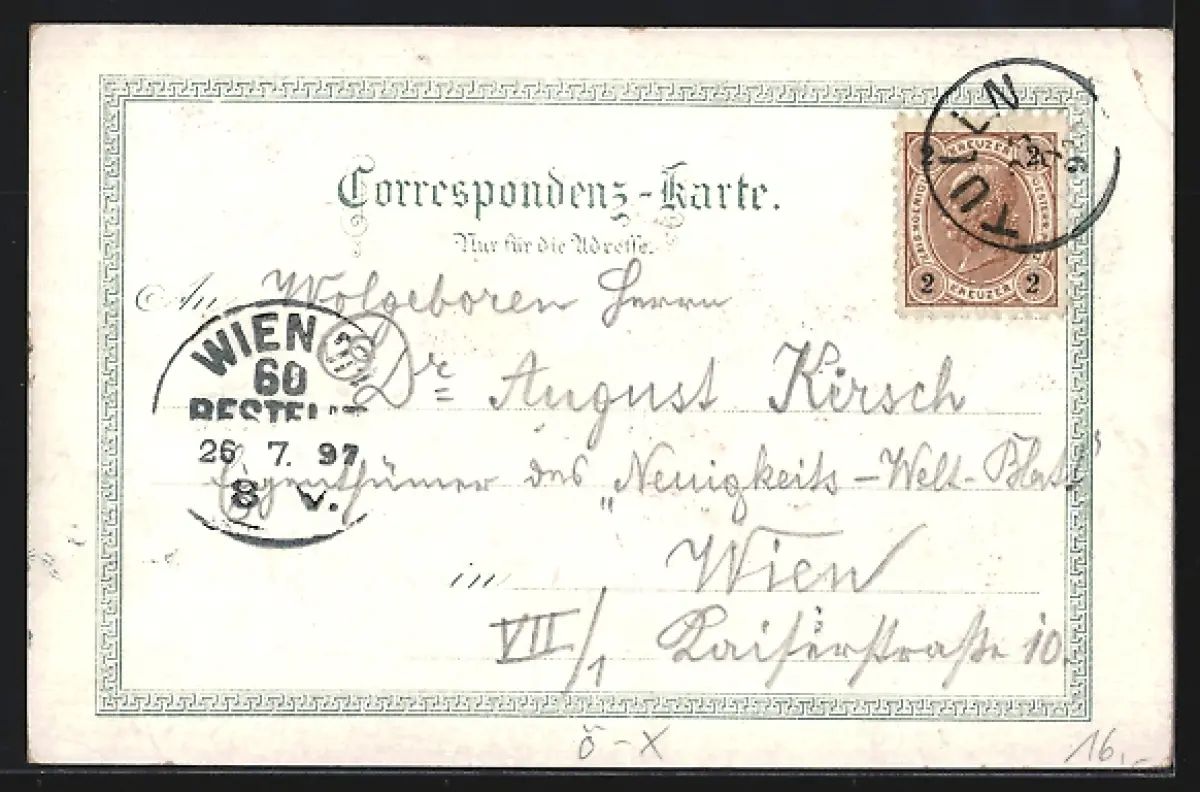 Correspondenz-Karte.
Nur für die Adresse.
An Wolgeboren Herrn
Dr. August Kirsch
Eigenthümer des „Neuigkeits-Welt-Blatt"
in Wien
VII/1 Kaiserstraße 10.
TULLN
2 KREUZER 2
2 KREUZER 2
WIEN
60
BESTELLT
26 7. 97
8 V.
ö-X
16,-